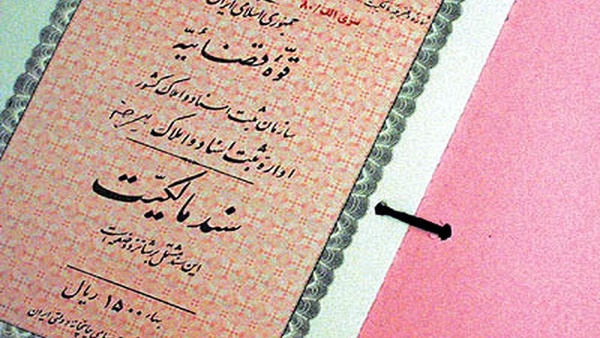 جمهوری اسلامی ایران
سری الف/۸۰
قوّه قضائیّه
سازمان ثبت اسناد و املاک کشور
اداره ثبت اسناد و املاک
سند مالکیّت
این سند مشتمل بر شانزده صفحه است
بهاء ۱۵۰۰ ریال
چاپخانه دولتی ایران